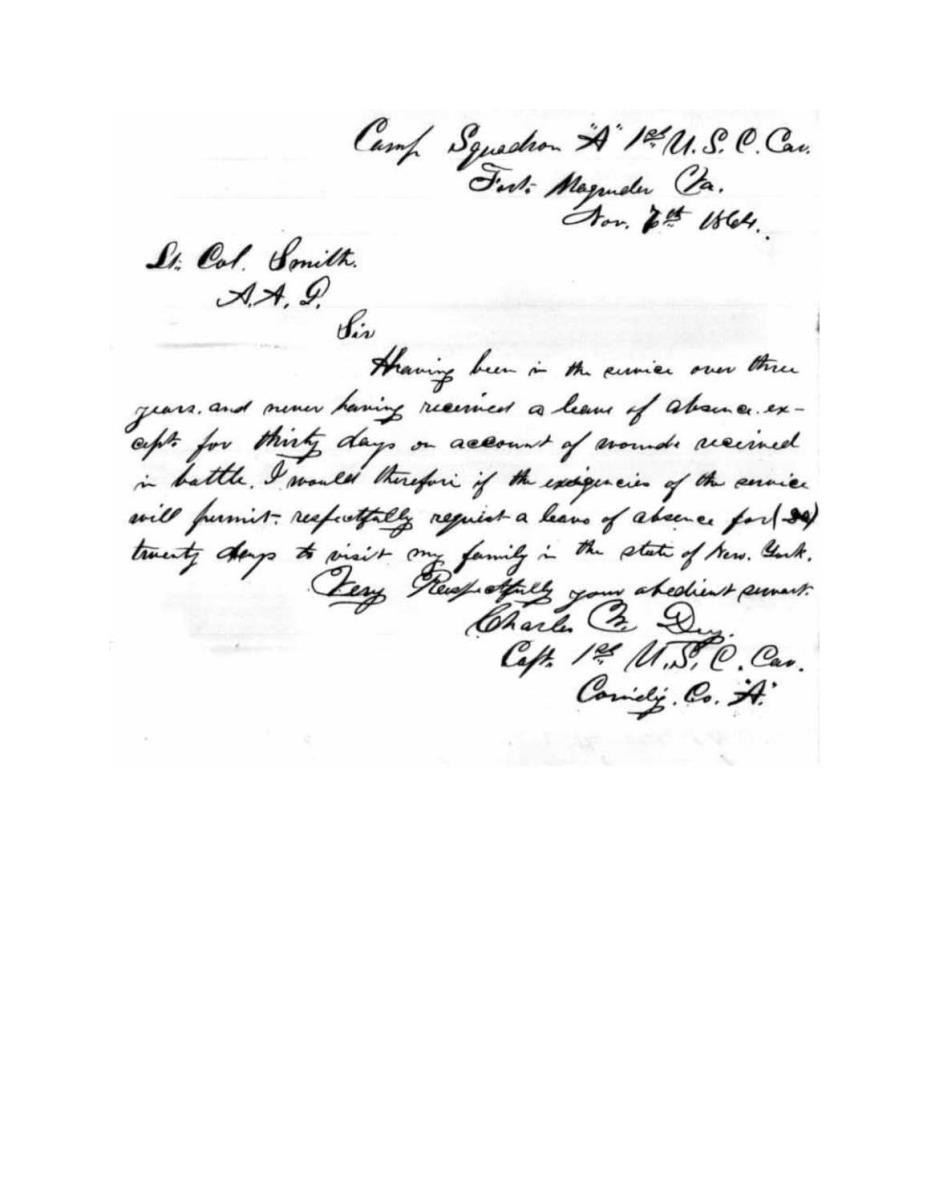 Camp Squadron "A" 1st U.S.C. Cav.
Fort Magruder Va.
Nov. 7th 1864.
Lt. Col. Smith.
A.A.G.
Sir
Having been in the service over three
years. and never having received a leave of absence. ex-
cept. for thirty days on account of wounds received
in battle. I would therefore if the exigencies of the service
will permit. respectfully request a leave of absence for (20)
twenty days to visit my family in the state of New. York.
Very Respectfully your obedient servant.
Charles W. Dey.
Capt. 1st U.S.C. Cav.
Comdg. Co. "A."